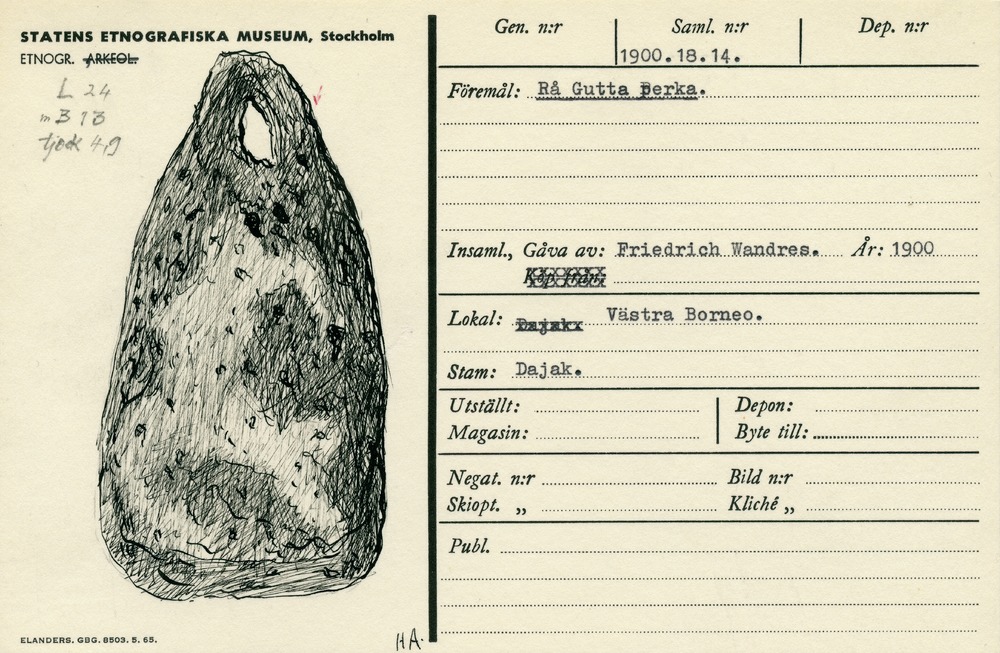 STATENS ETNOGRAFISKA MUSEUM, Stockholm
ETNOGR. ARKEOL.
L 24
m B 13
tjock 4,9
ELANDERS. GBG. 8503. 5. 65.
HA.
Gen. n:r Saml. n:r Dep. n:r
1900.18.14.
Föremål: Rå Gutta Perka.
Insaml., Gåva av: Friedrich Wandres. År: 1900
Köp från:
Lokal: Dajak Västra Borneo.
Stam: Dajak.
Utställt: Depon:
Magasin: Byte till:
Negat. n:r Bild n:r
Skiopt. „ Kliché „
Publ.